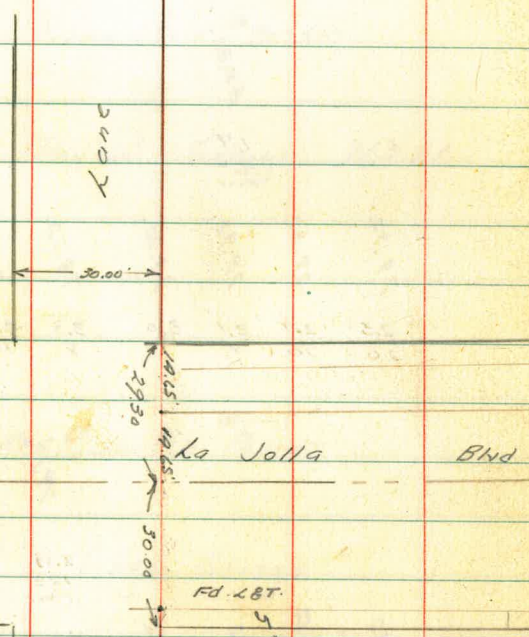 30.00'
14.65'
29.30
14.65'
La Jolla Blvd
30.00
Fd. L&T.
5